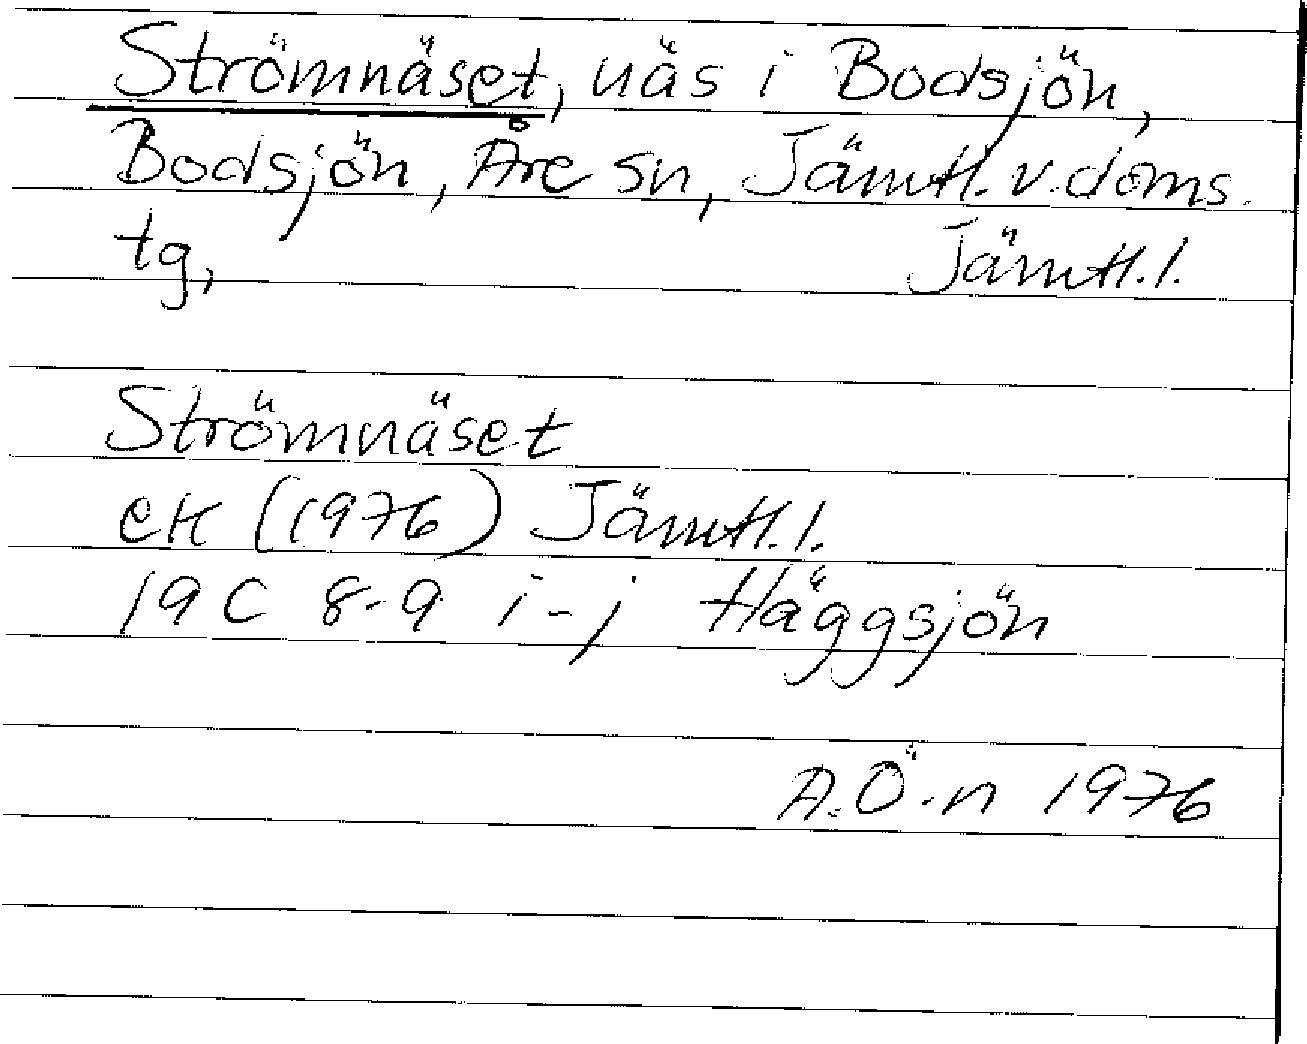 Strömnäset, näs i Bodsjön,
Bodsjön, Åre sn, Jämtl. v. doms.
tg, Jämtl. l.
Strömnäset
ek (1976) Jämtl. l.
19 C 8-9 i-j Häggsjön
A. Ö-n 1976